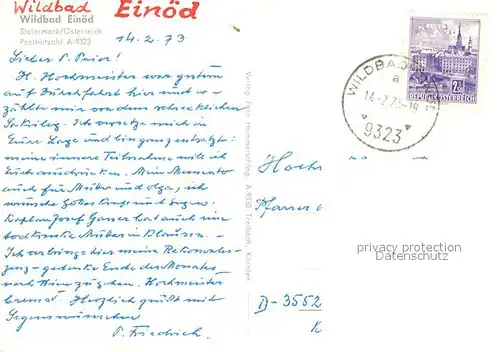 Wildbad Einöd
Wildbad Einöd
Steiermark/Österreich
Postleitzahl A-9323
14.2.73
Lieber P. Prior!
H. Hochmeister war gestern
auf Durchfahrt hier und er-
zählte mir von dem schrecklichen
Ich versetze mich in
Eure Lage und bin ganz entsetzt:
meine innere Teilnahme will ich
Euch ausdrücken. Mein Memento
auch für Mutter und Olga, ich
wünsche Gottes Kraft und Segen.
Kaplan Josef Gasser hat auch eine
todkranke Mutter in Klausen.
Ich verbringe hier meine Rekonvales-
zenz - gedenke Ende des Monates
nach Wien zu gehen. Hochmeister
Herzlich grüßt mit
Segenswünschen
P. Friedrich
Verlag Foto Hammerschlag, A-9330 Treibach, Kärnten
WILDBAD
a
14-2.73-18
9323
2.-S
REPUBLIK ÖSTERREICH
Hochw
Pfarrer
D-3552
K
privacy protection
Datenschutz